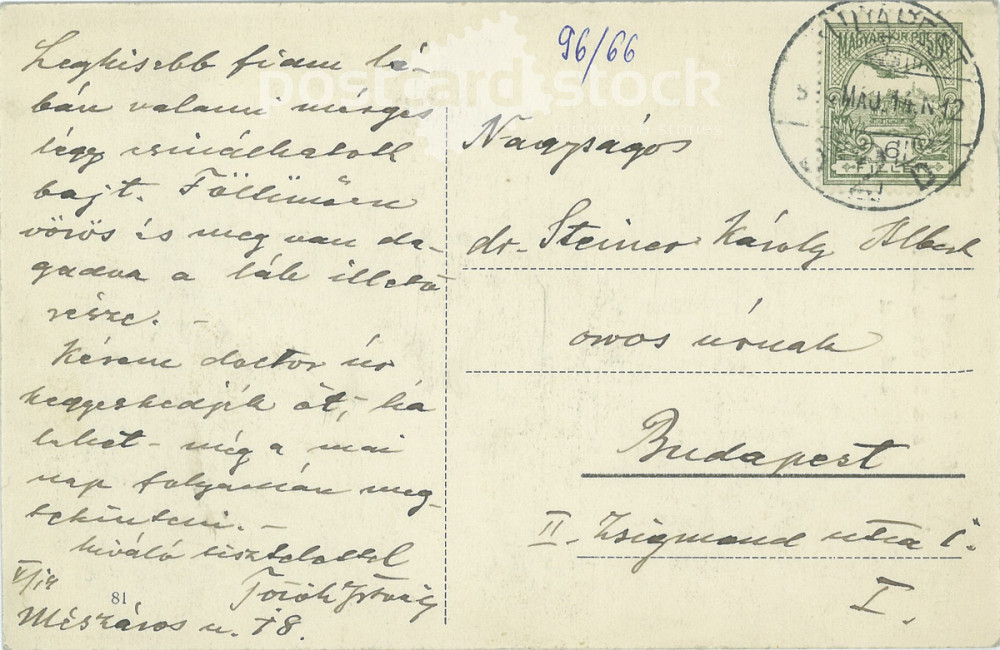 Legkisebb fiam lá-
bán valami mérges
légy csinálhatott
bajt. Föltünően
vörös és meg van da-
gadva a láb illető
része. -
Kérem doctor úr
kegyeskedjék őt, ha
lehet - míg a mai
nap folyamán meg-
tekinteni. -
kiváló tisztelettel
Török
V/14
81
Mészáros u. 18.
96/66
postcard stock
Nagyságos
dr. Steiner Károly Albert
orvos úrnak
Budapest
II. Zsigmond utca
I.
MAGYAR KIR. POSTA
MÁJ. 14. N 12
D
6
FILLÉR